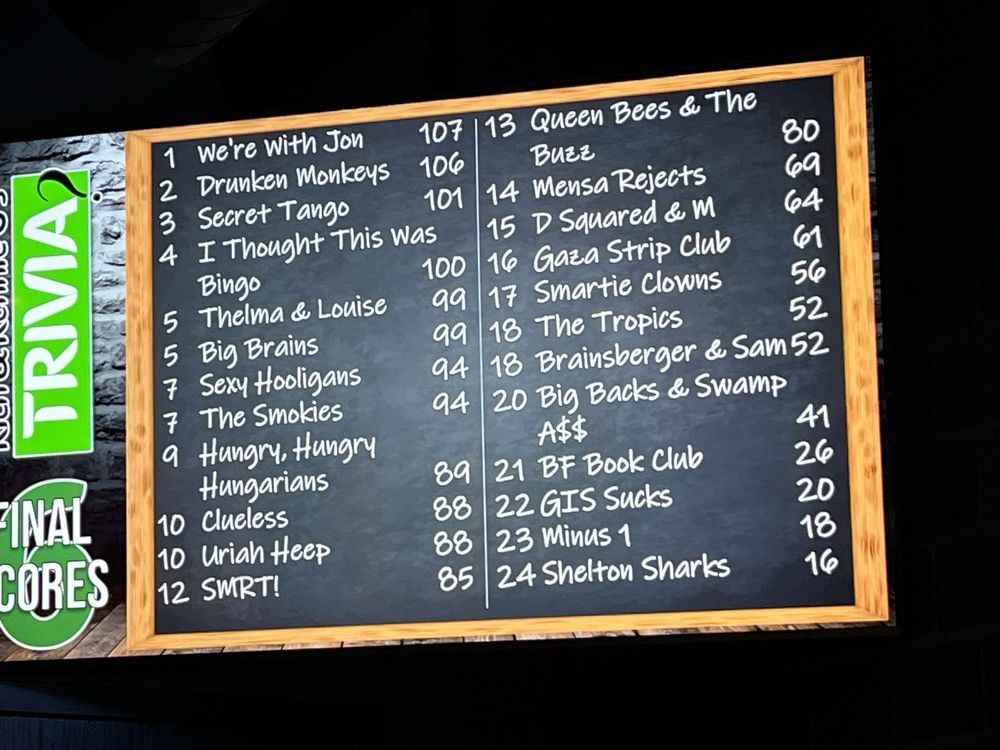 TRIVIA?
FINAL
SCORES
6
1 We're With Jon 107
2 Drunken Monkeys 106
3 Secret Tango 101
4 I Thought This Was
Bingo 100
5 Thelma & Louise 99
5 Big Brains 99
7 Sexy Hooligans 94
7 The Smokies 94
9 Hungry, Hungry
Hungarians 89
10 Clueless 88
10 Uriah Heep 88
12 SMRT! 85
13 Queen Bees & The
Buzz 80
14 Mensa Rejects 69
15 D Squared & M 64
16 Gaza Strip Club 61
17 Smartie Clowns 56
18 The Tropics 52
18 Brainsberger & Sam 52
20 Big Backs & Swamp
A$$ 41
21 BF Book Club 26
22 GIS Sucks 20
23 Minus 1 18
24 Shelton Sharks 16